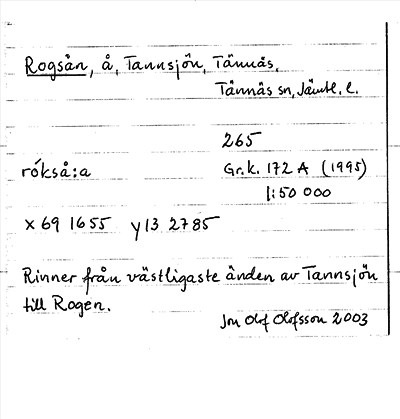 Rogsån, å, Tannsjön, Tännäs,
Tännäs sn, Jämtl. l.
265
rókså:a
Gr.k. 172 A (1995)
1:50 000
x 69 1655 y 13 2785
Rinner från västligaste änden av Tannsjön
till Rogen.
Jon Olof Olofsson 2003